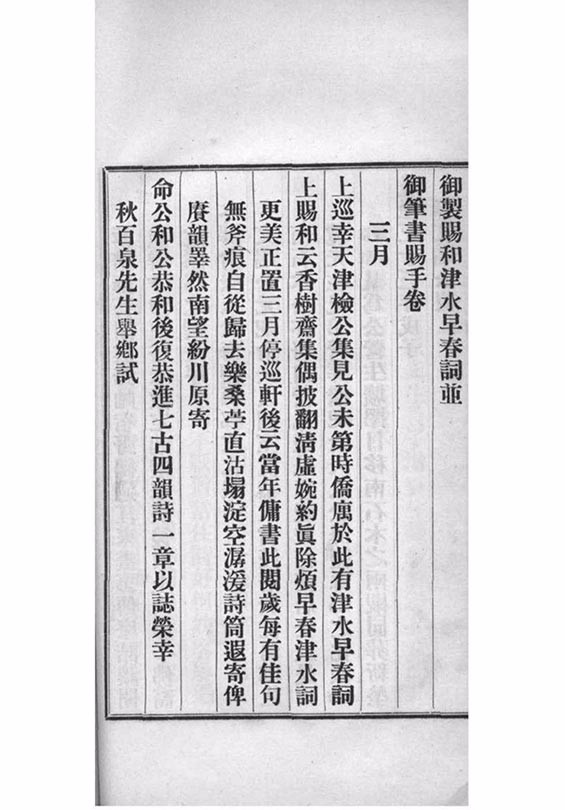 御製賜和津水早春詞並
御筆書賜手卷
三月
上巡幸天津檢公集見公未第時僑寓於此有津水早春詞
上賜和云香樹齋集偶披翻清虛婉約眞除煩早春津水詞
更美正置三月停巡軒後云當年傭書此閱歲每有佳句
無斧痕自從歸去樂桑苧直沽塌淀空潺湲詩筒遐寄俾
賡韻睪然南望紛川原寄
命公和公恭和後復恭進七古四韻詩一章以誌榮幸
秋百泉先生舉鄉試